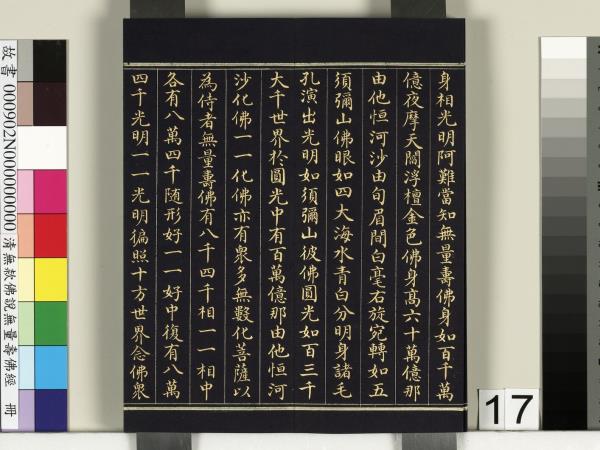 身相光明阿難當知無量壽佛身如百千萬
億夜摩天閻浮檀金色佛身髙六十萬億那
由他恒河沙由旬眉間白毫右旋宛轉如五
須彌山佛眼如四大海水青白分明身諸毛
孔演出光明如須彌山彼佛圓光如百三千
大千世界於圓光中有百萬億那由他恒河
沙化佛一一化佛亦有衆多無數化菩薩以
為侍者無量壽佛有八千四千相一一相中
各有八萬四千随形好一一好中復有八萬
四千光明一一光明徧照十方世界念佛衆
故書 000902N000000000 清無款佛說無量壽佛經 冊
17